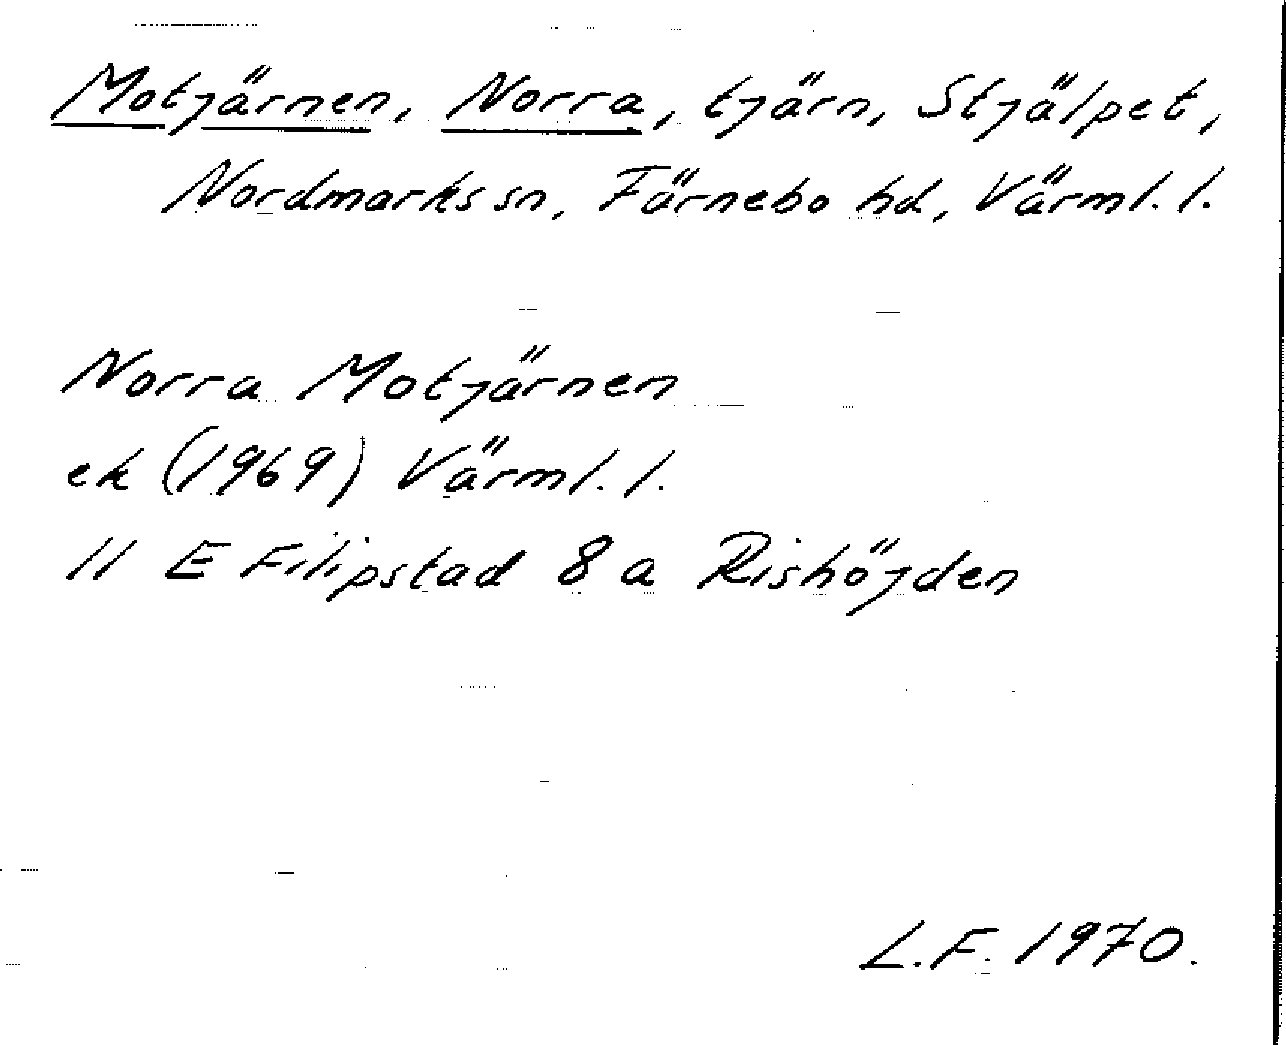 Motjärnen, Norra, tjärn, Stjälpet,
Nordmarks sn, Färnebo hd, Värml. l.
Norra Motjärnen
ek (1969) Värml. l.
11 E Filipstad 8 a Rishöjden
L.F. 1970.